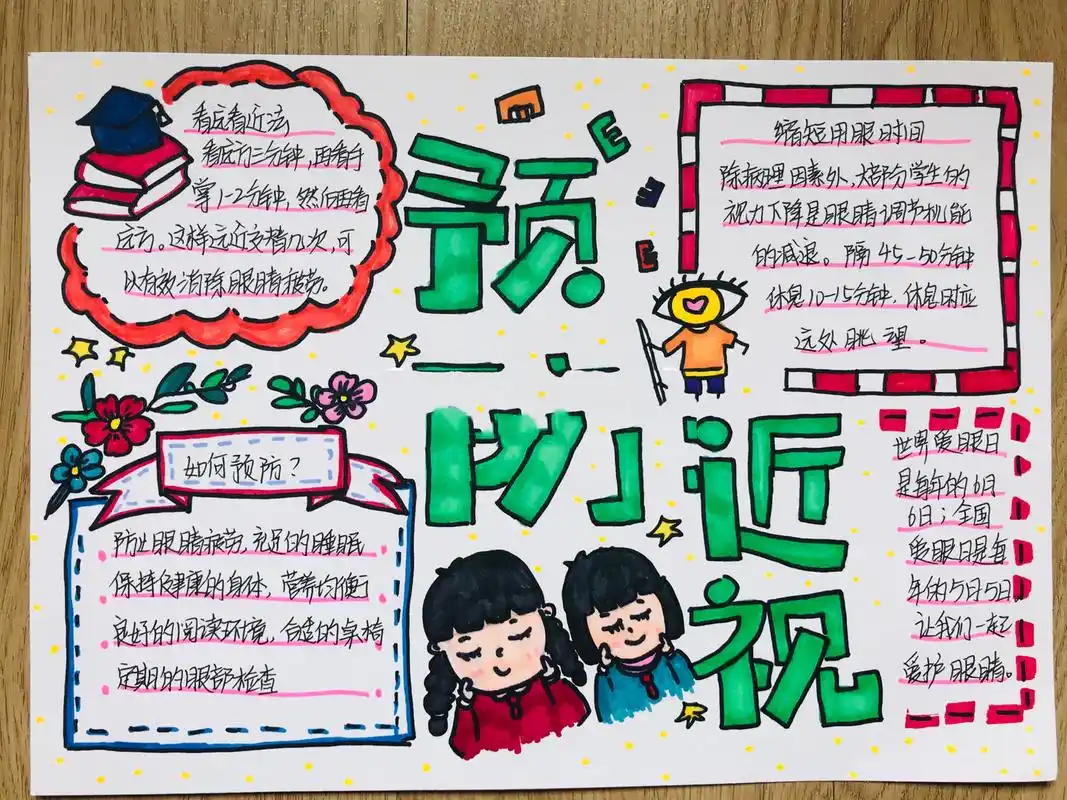 看远看近法
看远方三分钟，再看手
掌1-2分钟，然后再看
远方。这样远近交替几次，可
以有效消除眼睛疲劳。
预
防
近
视
E
E
E
E
缩短用眼时间
除病理因素外，大部分学生的
视力下降是眼睛调节机能
的减退。隔45-50分钟
休息10-15分钟，休息时应
远处眺望。
如何预防？
防止眼睛疲劳，充足的睡眠
保持健康的身体，营养均衡
良好的阅读环境，合适的桌椅
定期的眼部检查
世界爱眼日
是每年的6月
6日；全国
爱眼日是每
年的5月5日。
让我们一起
爱护眼睛。